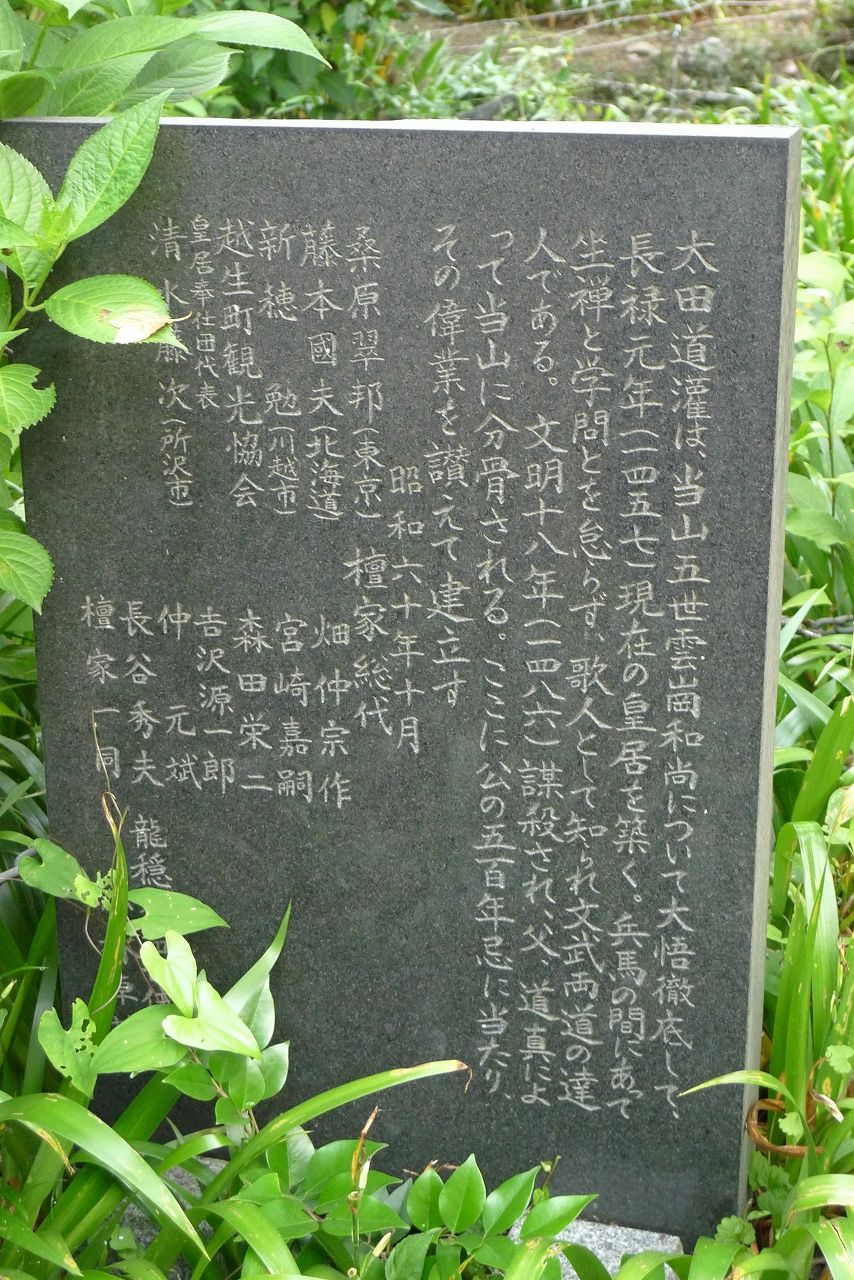 太田道灌は、当山五世雲崗和尚について大悟徹底して、
長禄元年(一四五七)現在の皇居を築く。兵馬の間にあって
坐禅と学問とを怠らず、歌人として知られ文武両道の達
人である。文明十八年(一四八六)謀殺され、父、道真によ
って当山に分骨される。ここに公の五百年忌に当たり、
その偉業を讃えて建立す
昭和六十年十月
桑原翠邦(東京)
藤本國夫(北海道)
新穂 勉(川越市)
越生町観光協会
皇居奉仕団代表
清水藤次(所沢市)
檀家総代
畑仲宗作
宮崎嘉嗣
森田栄二
吉沢源一郎
仲 元斌
長谷秀夫
檀家一同
龍穏